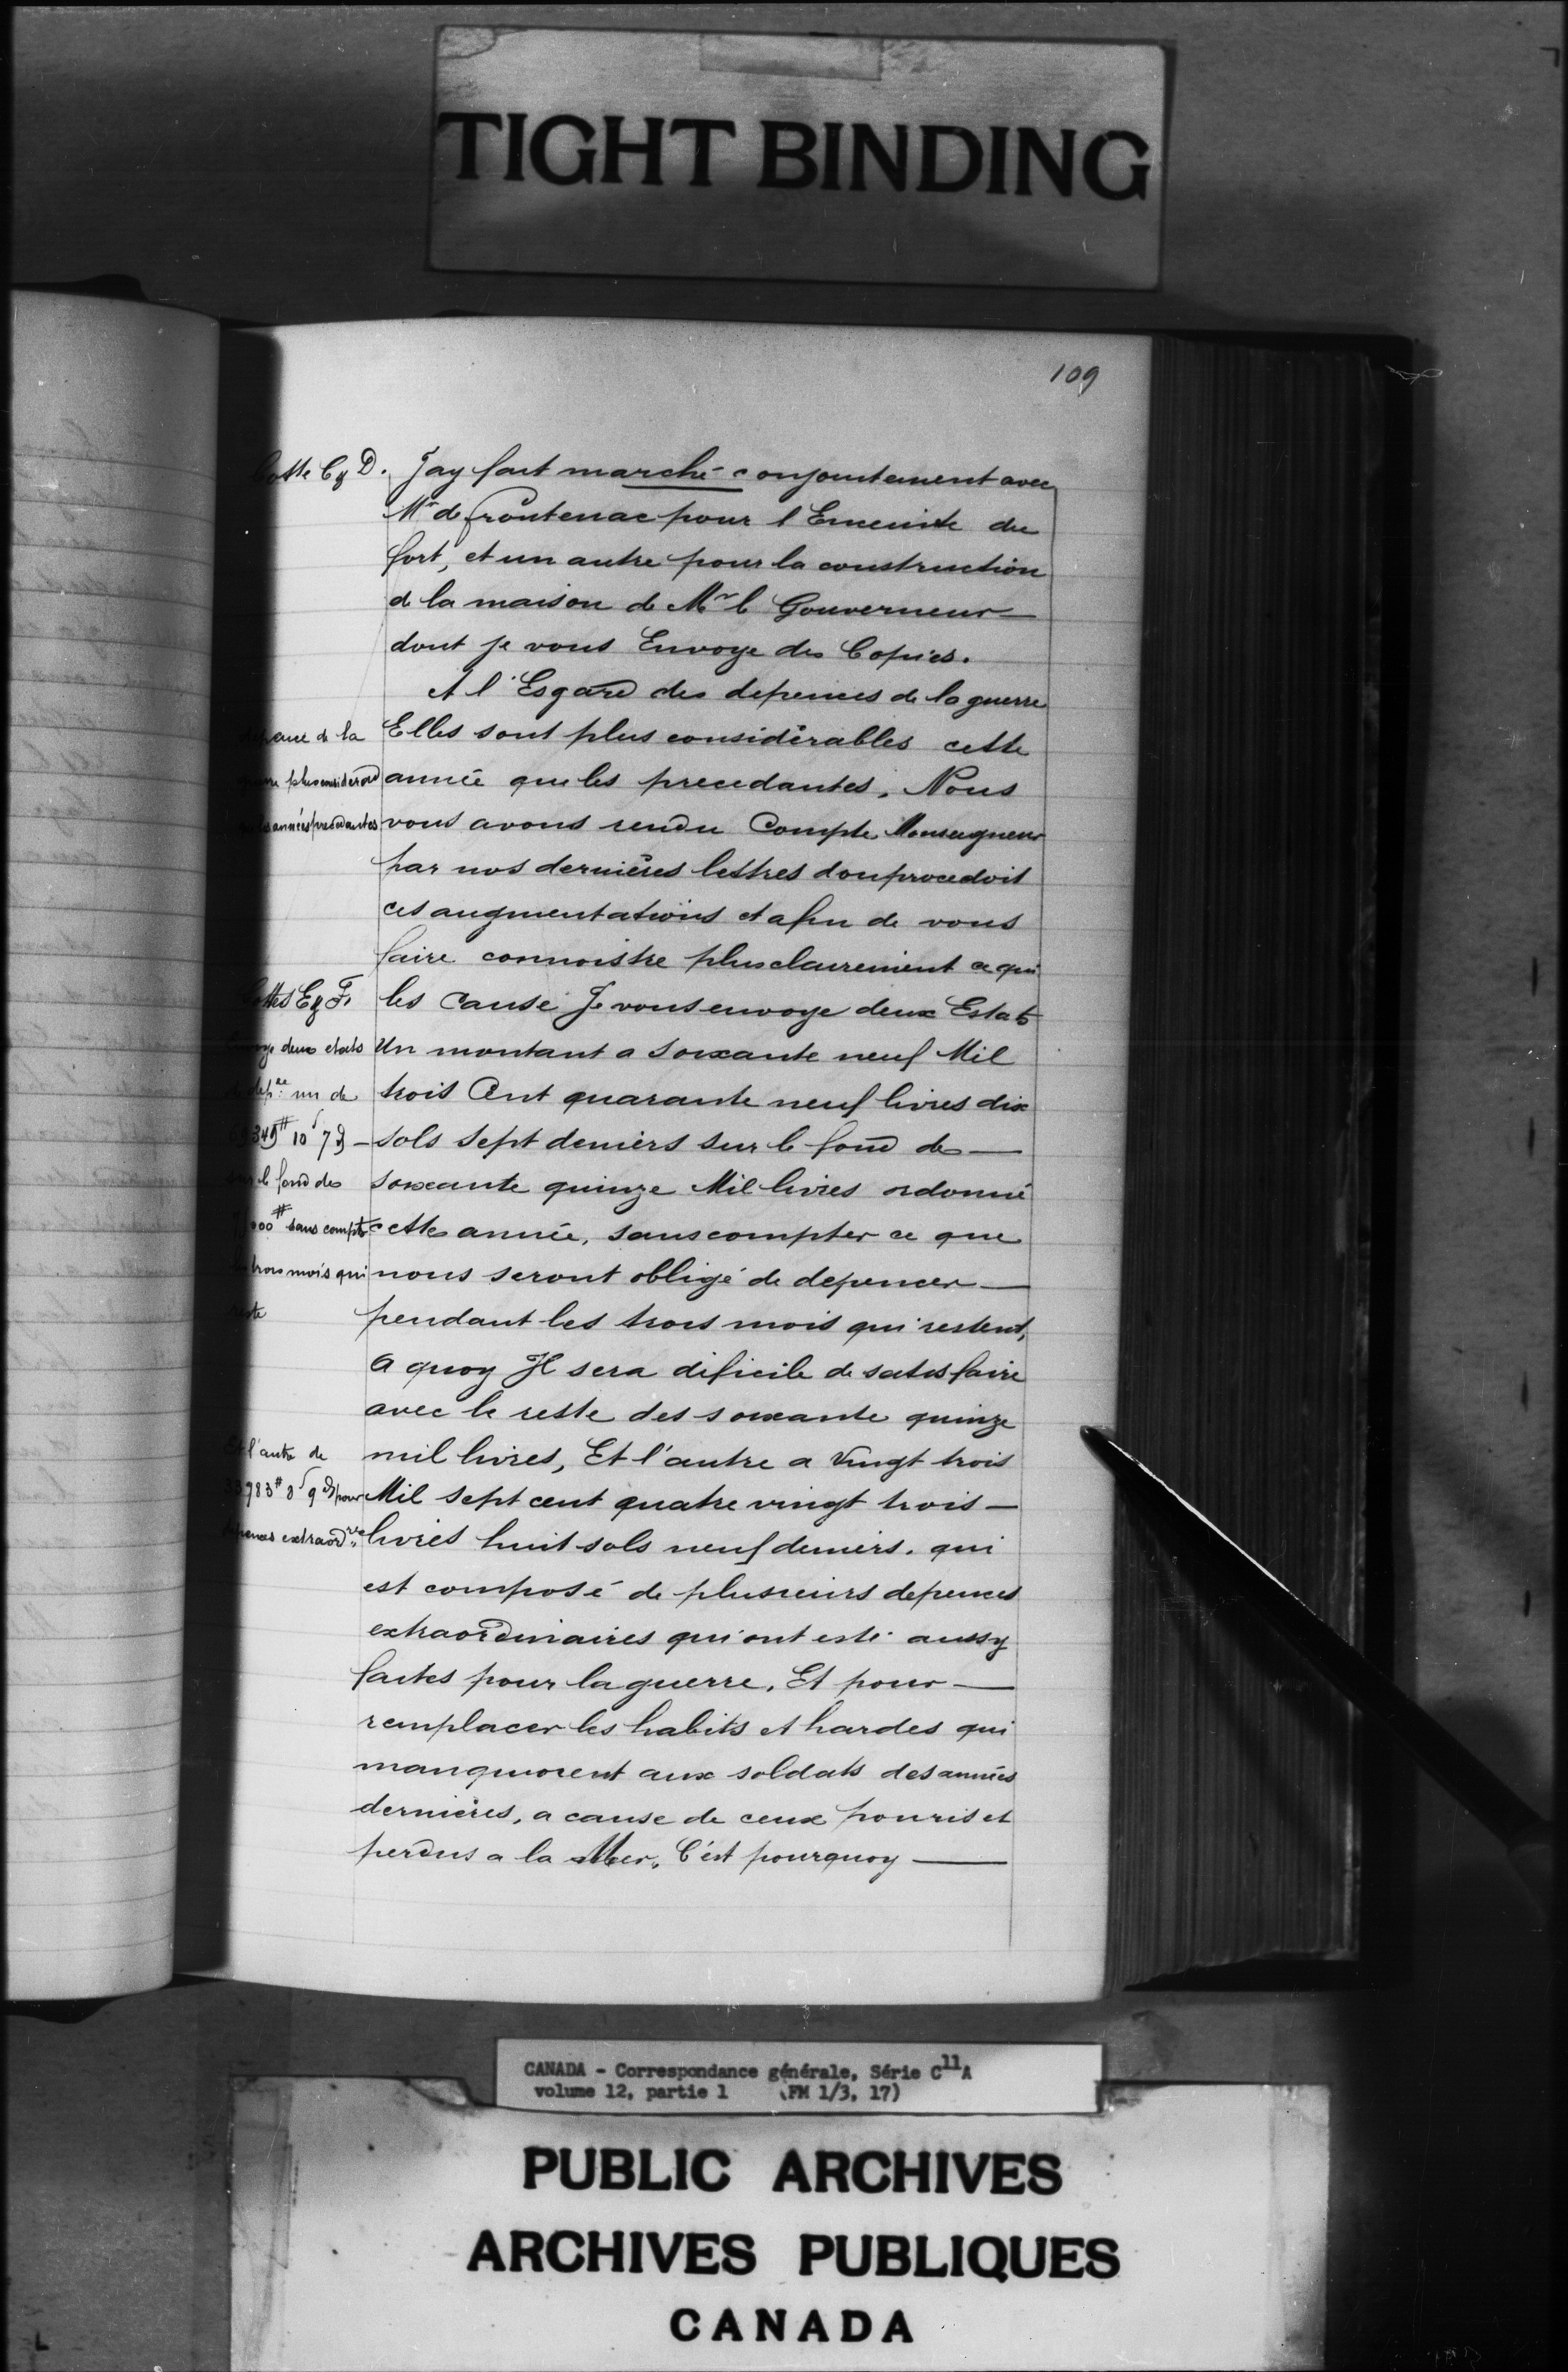 TIGHT BINDING
109
Cotte C & D. Jay fait marché conjointement avec
Mr de frontenac pour l Enceinte du
fort, et un autre pour la construction
de la maison de Mr le Gouverneur
dont je vous Envoye des Copies.
A l'Esgard des depences de la guerre
de la
Elles sont plus considérables cette
plus considerab
année que les precedantes. Nous
années precedantes
vous avons rendu Compte Monseigneur
par nos dernières lettres d'ou procedoit
ces augmentations et afin de vous
faire connoistre plus clairement ce qui
Cottes E & F.
les Cause Je vous envoye deux Estats
deux etats
Un montant a soixante neuf Mil
dep.ce un de
trois Cent quarante neuf livres dix
349# 10s 7d
sols sept deniers sur le fond des
le fond des
soixante quinze Mil livres ordonné
000# sans compter
cette année, sans compter ce que
trois mois qui
nous seront obligé de depencer
reste
pendant les trois mois qui restent,
a quoy Il sera dificile de satisfaire
avec le reste des soixante quinze
Et l'autre de
mil livres, Et l'autre a Vingt trois
783# 8s 9d pour
Mil sept cent quatre vingt trois
depences extraord.res
livres huit sols neuf deniers. qui
est composé de plusieurs depences
extraordinaires qui ont esté aussy
faites pour la guerre. Et pour
remplacer les habits et hardes qui
manquoient aux soldats des années
dernieres, a cause de ceux pouris et
perdus a la Mer. C'est pourquoy
CANADA - Correspondance générale, Série C11A
volume 12, partie 1 (FM 1/3, 17)
PUBLIC ARCHIVES
ARCHIVES PUBLIQUES
CANADA